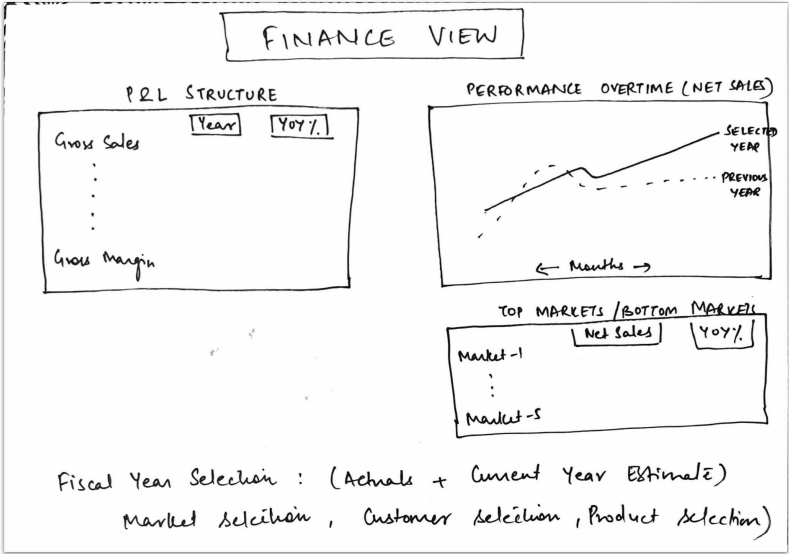 FINANCE VIEW
P & L STRUCTURE
Year YOY %
Gross Sales
Gross Margin
PERFORMANCE OVERTIME (NET SALES)
SELECTED
YEAR
PREVIOUS
YEAR
← Months →
TOP MARKETS / BOTTOM MARKETS
Net Sales YOY %
Market-1
Market-5
Fiscal Year Selection : (Actuals + Current Year Estimate)
Market selection , Customer selection , Product selection)